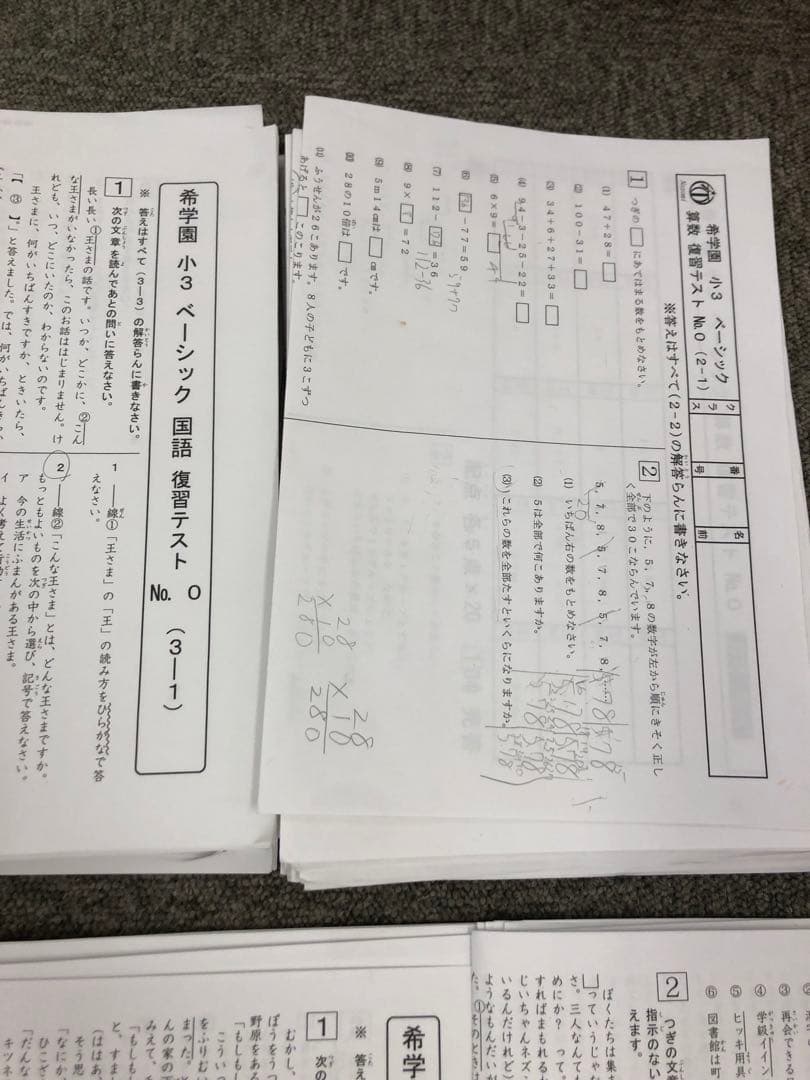 希学園 小3 ベーシック 国語 復習テスト № 0 (3―1)
※ 答えはすべて(3―3)の解答らんに書きなさい。
1 次の文章を読んであとの問いに答えなさい。
長い長い①王さまの話です。いつか、どこかに、②こん
な王さまがいなかったら、このお話ははじまりません。け
れども、いつ、どこにいたのか、わからないのです。
王さまに、何がいちばんすきですか、ときいたら、
「【 ③ 】」と答えました。では、何がいちばんきらい、
1 ――線①「王さま」の「王」の読み方をひらがなで答
えなさい。
2 ――線②「こんな王さま」とは、どんな王さまですか。
もっともよいものを次の中から選び、記号で答えなさい。
ア 今の生活にふまんがある王さま。
イ よく考えて行動
希学園 小3 ベーシック
算数 復習テスト №0 (2-1)
クラス
番号
名前
※答えはすべて(2-2)の解答らんに書きなさい。
1 つぎの□にあてはまる数をもとめなさい。
(1) 47+28=□
(2) 100-31=□
(3) 34+6+27+33=□
(4) 94-3-25-22=□
(5) 6×9=□
(6) □-77=59
59+77
(7) 112-□=36
112-36
(8) 9×□=72
(9) 5m14㎝は□㎝です。
(10) 28の10倍は□です。
(11) ふうせんが26こあります。8人の子どもに3こずつ
あげると□このこります。
2 下のように、5、7、8の数字が左から順にきそく正し
く全部で30こならんでいます。
5、7、8、5、7、8、5、7、8、5……
20
(1) いちばん右の数をもとめなさい。
(2) 5は全部で何こありますか。
(3) これらの数を全部たすといくらになりますか。
28
×10
280
28
×10
280
希学
※ 答
1 次の
むかし、
ぼうをうつ
野原をある
「もしもし
こういっ
をふりむい
まった。
んの家の
みえて、
と、すまし
「もしもし
(ははあ、
そう思
「なにか、
ひこざ
「だんな
キツネ
2 つぎの文章
指示のない
えます。
ぼくたちは集ま
っていうじゃ
さ。三人なんても
めにか? って。
すればまもれるか
じいちゃんネズミ
いるんだけれど)
ようなもんだいが
た。①そのとき
③ 再会できる
④ 学級イイン
⑤ ヒッキ用具
⑥ 図書館は町